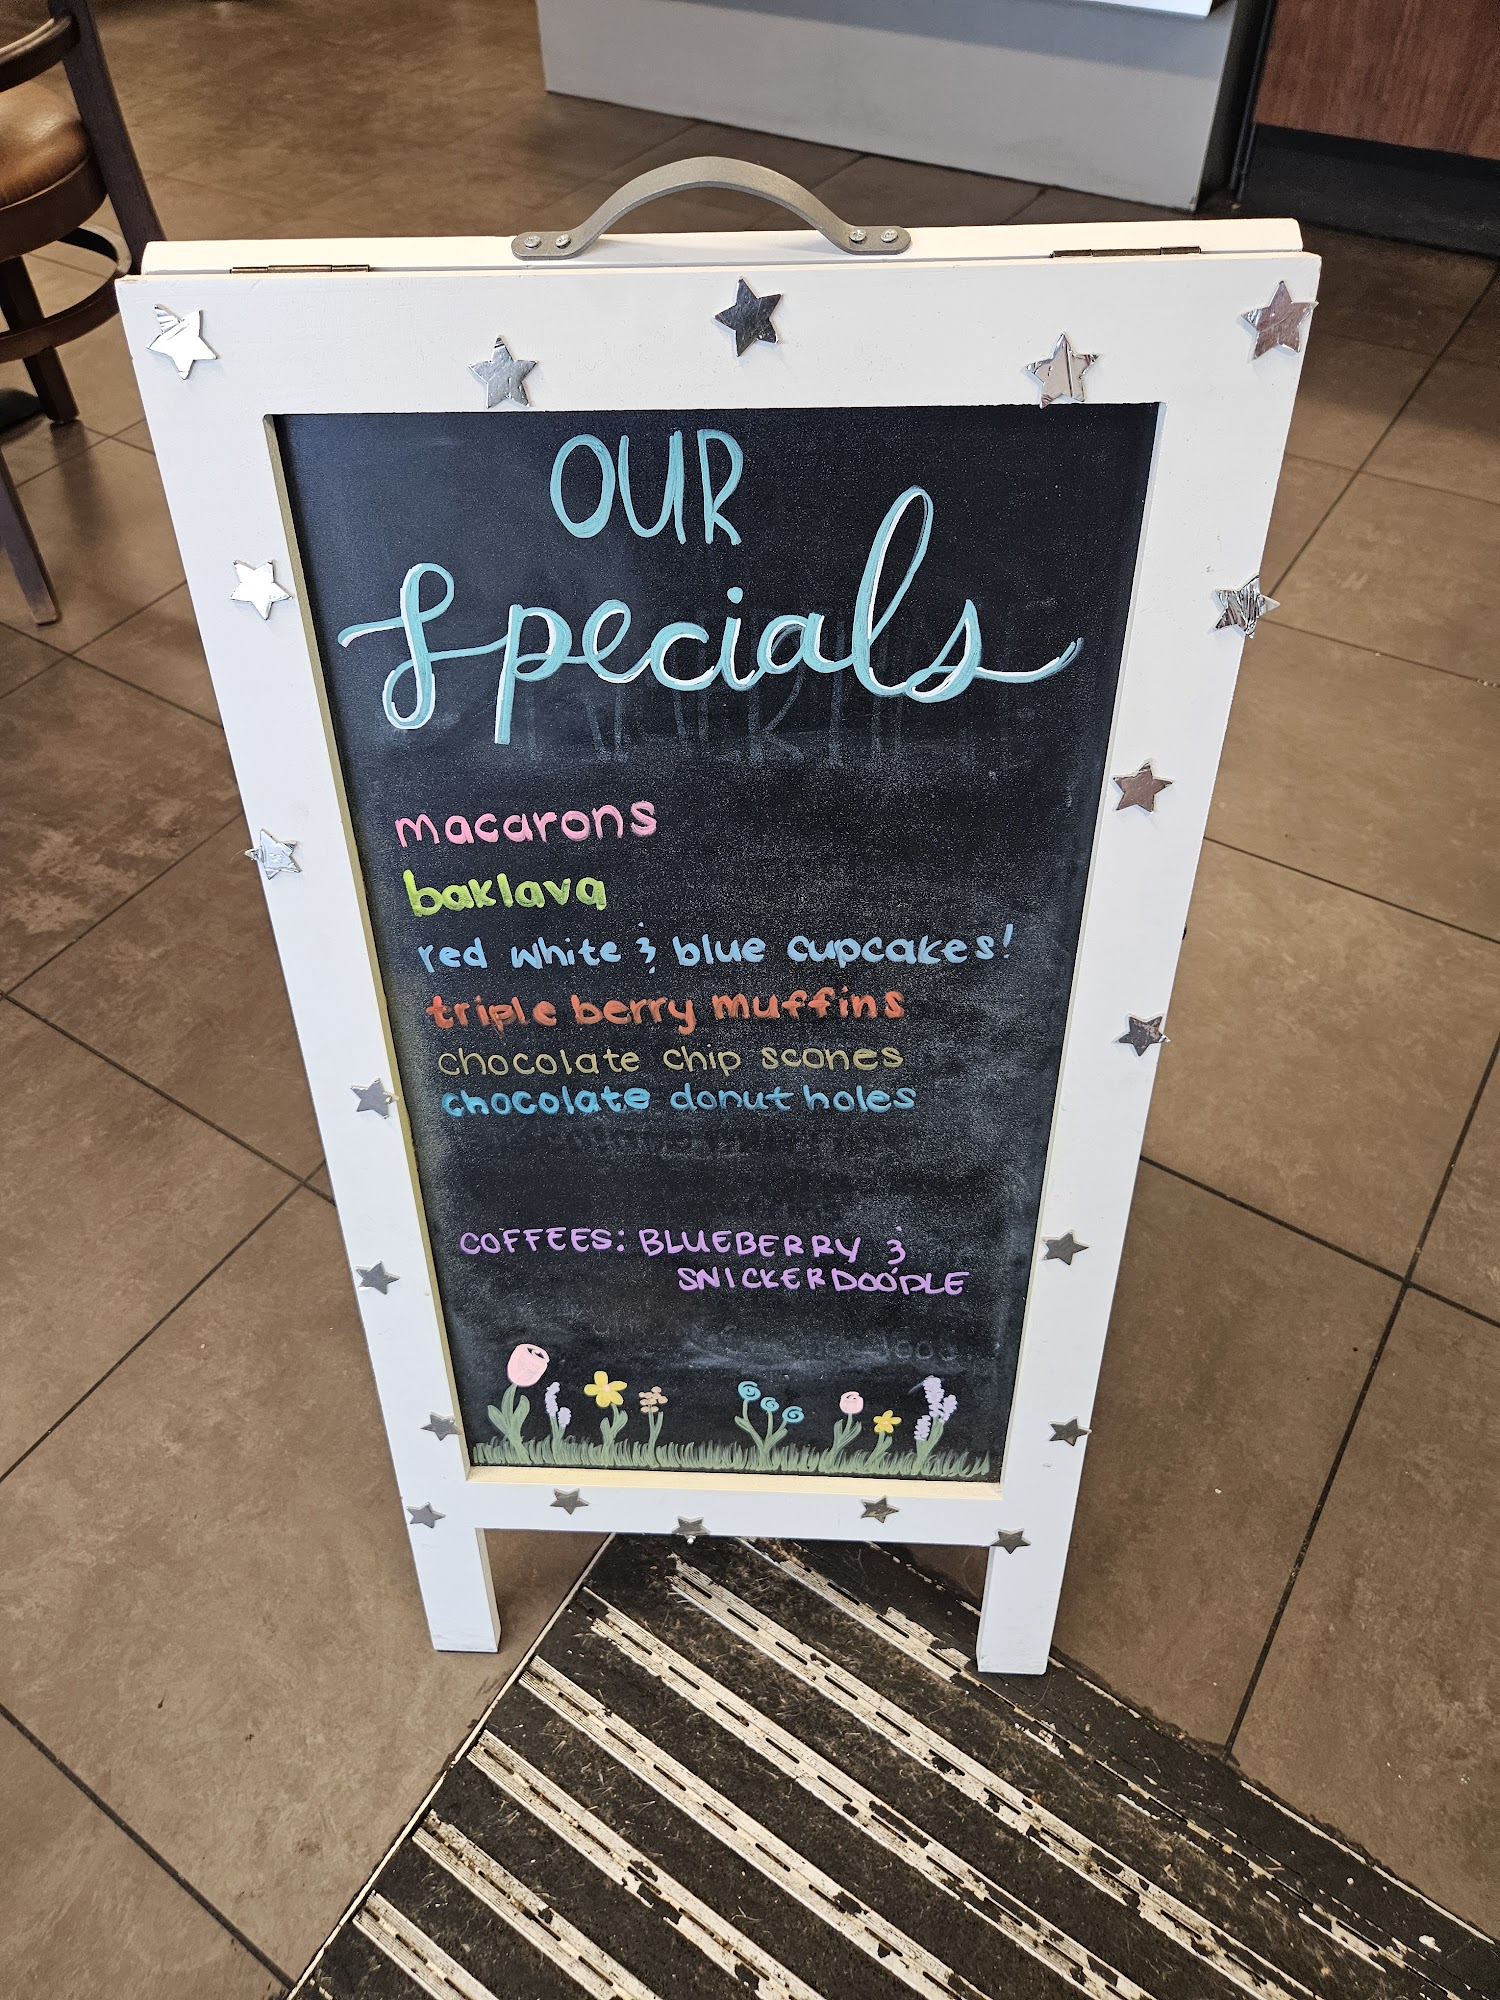 OUR
Specials
macarons
baklava
red white & blue cupcakes!
triple berry muffins
chocolate chip scones
chocolate donut holes
COFFEES: BLUEBERRY &
SNICKERDOODLE